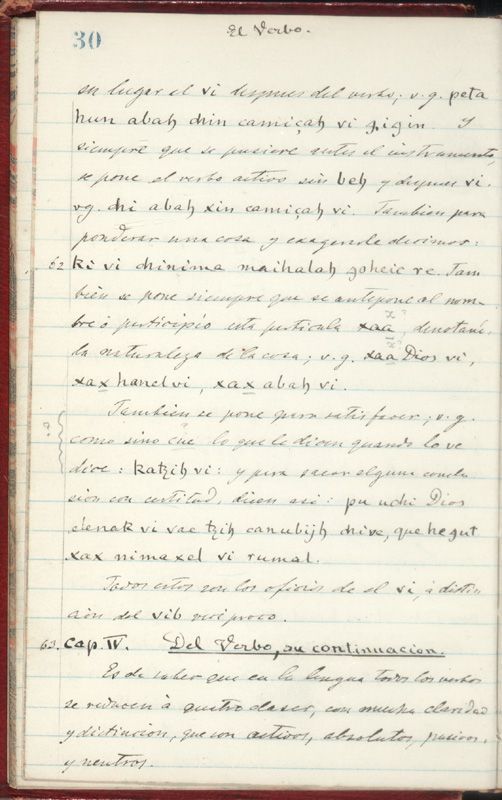 30
El Verbo.
su lugar el vi despues del verbo; v.g. peta
hun abaḩ chin camiçaḩ vi gigin. Y
siempre que se pusiere antes el instrumento,
se pone el verbo activo sin beh y despues vi.
vg. chi abaḩ xin camiçaḩ vi. Tambien para
ponderar una cosa y exagerarla decimos:
62. ki vi chinima maihalaḩ goheic re. Tam
bien se pone siempre que se antepone al nom-
bre ó participio esta particula xaa, denotan.
la naturaleza de la cosa; v.g. xaa Dios vi,
xax hanel vi, xax abaḩ vi.
Tambien se pone para satisfacer; v.g.
? como sino cue lo que le dicen quando lo ve
dice: katziḩ vi: y para sacar alguna conclu
sion con certitad, dicen asi: pu uchi Dios
elenak vi vae tziḩ canubijḩ chive, que he gut
xax nimaxel vi rumal.
Todos estos son los oficios de el vi, á distin
cion del vib reciproco.
63. Cap. IV. Del Verbo, su continuacion.
Es de saber que en la lengua todos los verbos
se reducen à quatro clases, con mucha claridad
y distincion, que son activos, absolutos, pasivos,
y neutros.